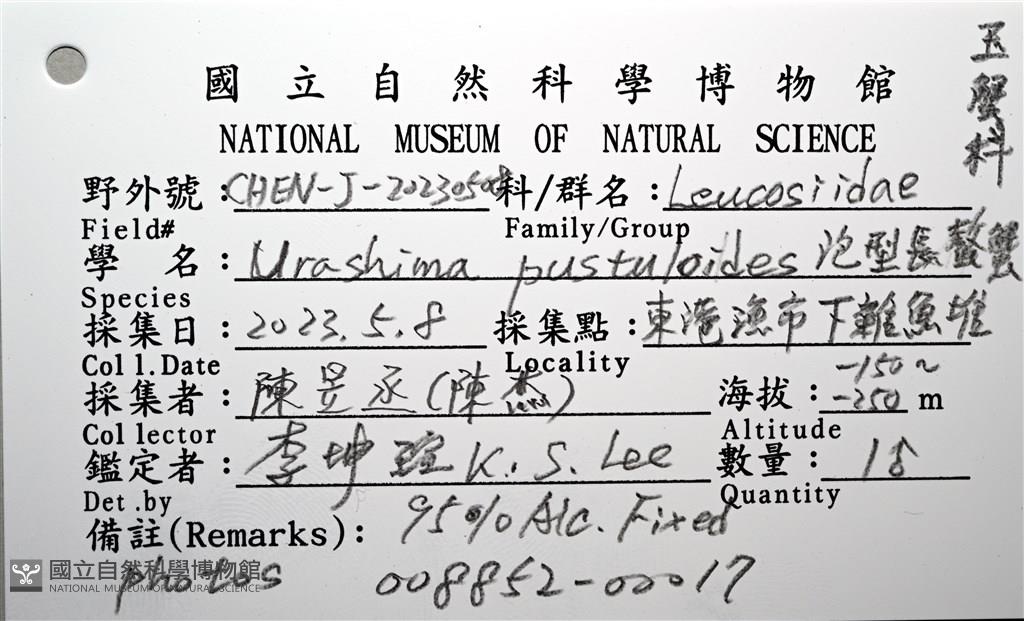 玉蟹科
國立自然科學博物館
NATIONAL MUSEUM OF NATURAL SCIENCE
野外號：CHEN-J-20230508 科/群名：Leucosiidae
Field# Family/Group
學名：Urashima pustuloides 泡型長螯蟹
Species
採集日：2023.5.8 採集點：東港漁市下雜魚堆
Coll.Date Locality
採集者：陳昱丞(陳杰) 海拔：-150~-250 m
Collector Altitude
鑑定者：李坤瑄 K.S. Lee 數量：1♂
Det.by Quantity
備註(Remarks)：95% Alc. Fixed
photos 008852-00017
國立自然科學博物館
NATIONAL MUSEUM OF NATURAL SCIENCE